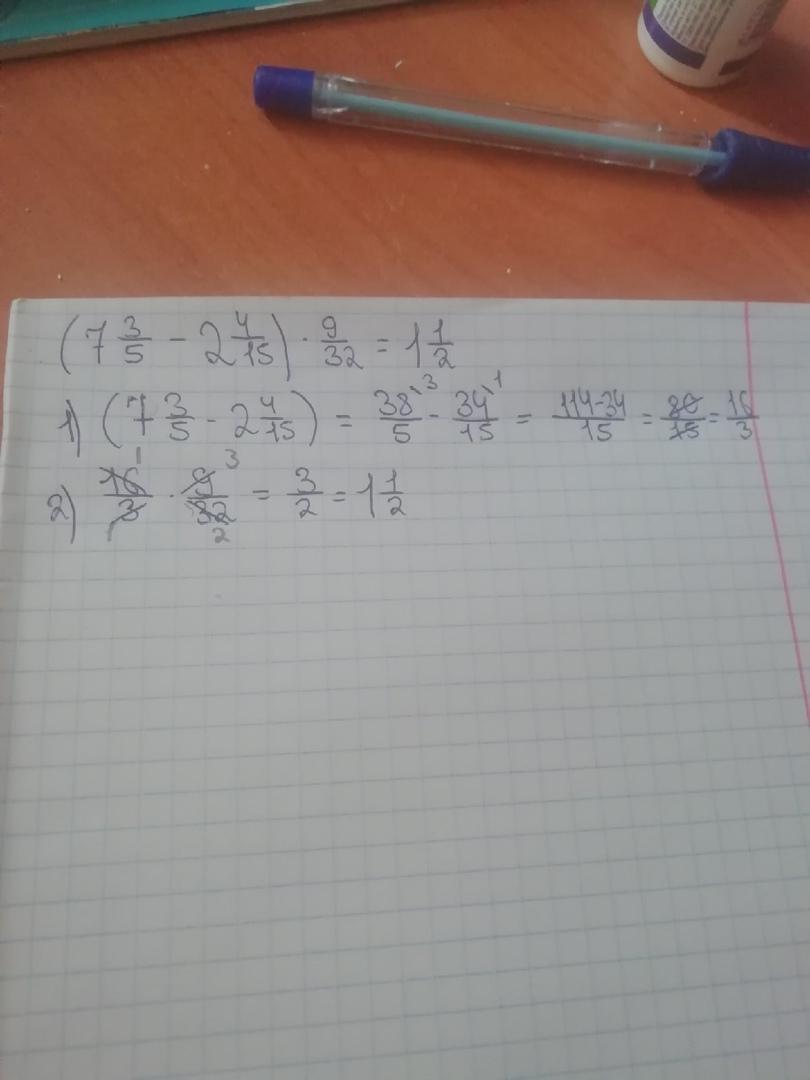 (7 3/5 - 2 4/15) · 9/32 = 1 1/2
1) (7 3/5 - 2 4/15) = 38/5 \3 - 34/15 \1 = 114-34/15 = 80/15 = 16/3
2) 16/3 1 · 9/32 3 2 = 3/2 = 1 1/2